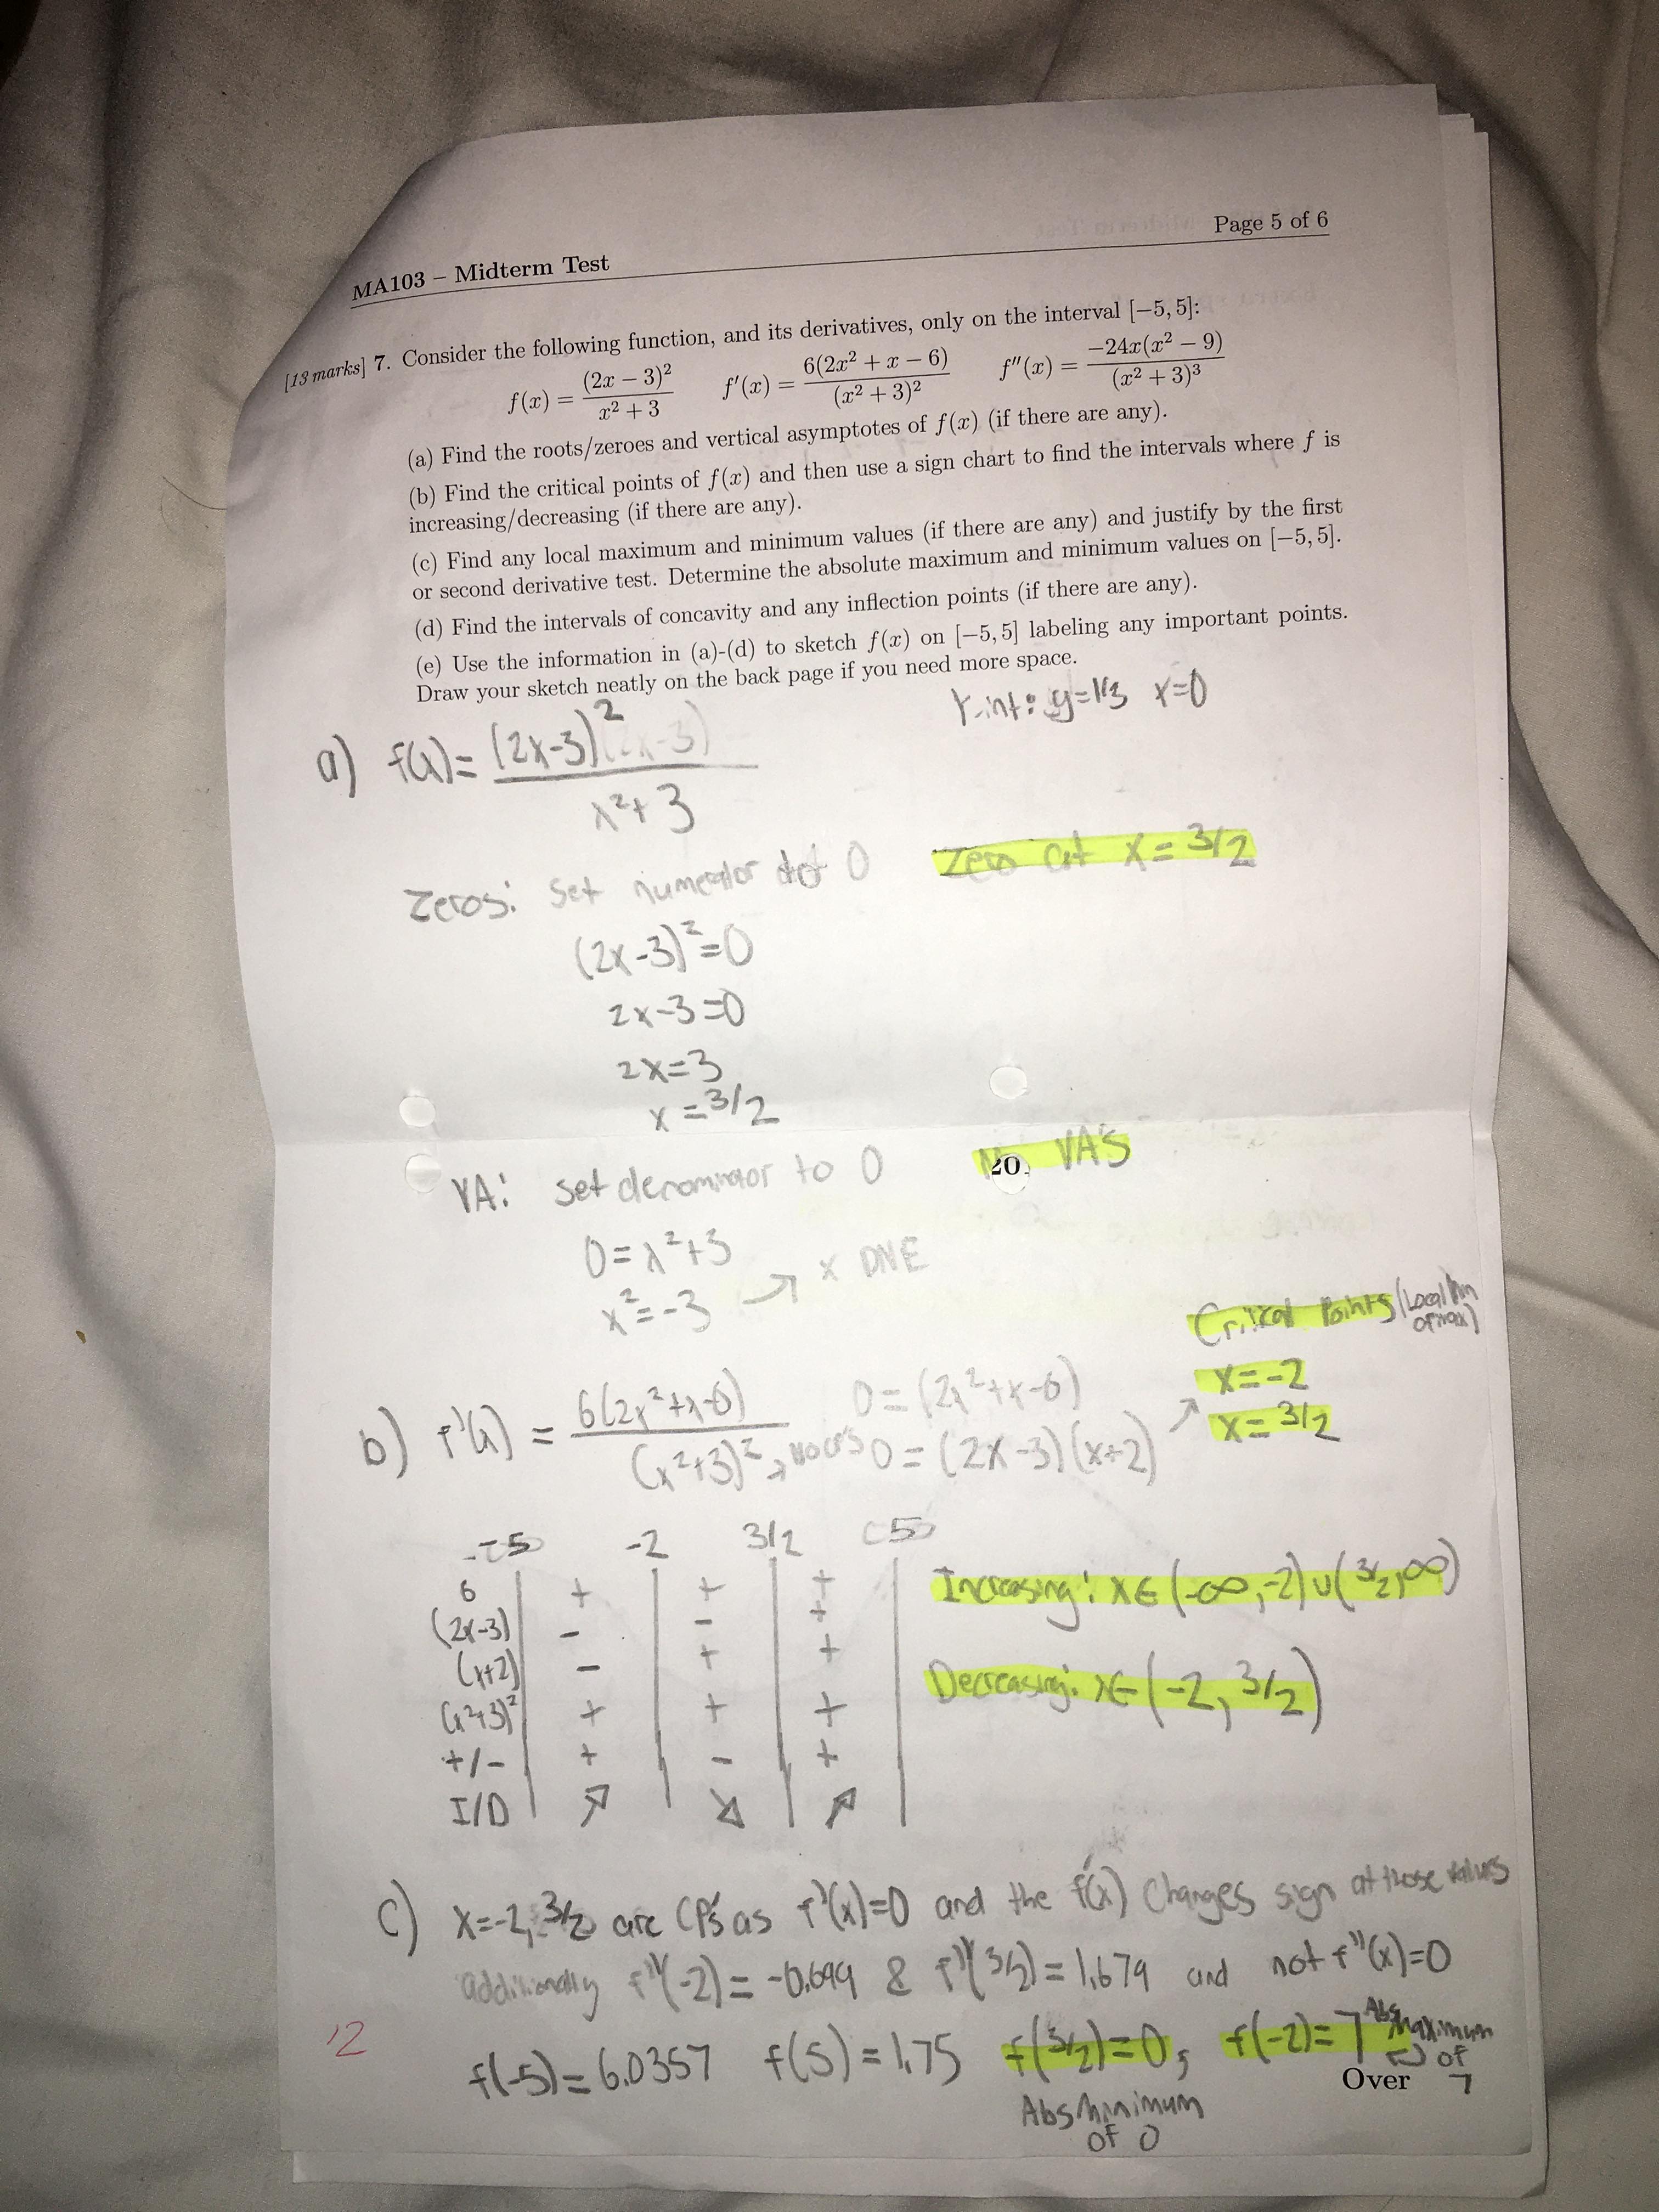 MA103 – Midterm Test
Page 5 of 6
[13 marks] 7. Consider the following function, and its derivatives, only on the interval [−5, 5]:
f(x) = (2x − 3)² / (x² + 3)   f′(x) = 6(2x² + x − 6) / (x² + 3)²   f″(x) = −24x(x² − 9) / (x² + 3)³
(a) Find the roots/zeroes and vertical asymptotes of f(x) (if there are any).
(b) Find the critical points of f(x) and then use a sign chart to find the intervals where f is
increasing/decreasing (if there are any).
(c) Find any local maximum and minimum values (if there are any) and justify by the first
or second derivative test. Determine the absolute maximum and minimum values on [−5, 5].
(d) Find the intervals of concavity and any inflection points (if there are any).
(e) Use the information in (a)-(d) to sketch f(x) on [−5, 5] labeling any important points.
Draw your sketch neatly on the back page if you need more space.
Y-int: y=1/3 x=0
a) f(x) = (2x-3)² / x²+3
Zeros: Set 0
Zero at x = 3/2
(2x-3)²=0
2x-3=0
2x=3
x = 3/2
VA: set denominator to 0
20. VA's
0 = x²+3
x² = -3 → x DNE
Critical Points (Local
or max)
x=-2
x = 3/2
b) f'(x) = 6(2x²+x-6) / (x²+3)²,
0 = (2x²+x-6)
0 = (2x-3)(x+2) ↗
-5 -2 3/2 5
6 + + +
(2x-3) - - +
(x+2) - + +
(x²+3)² + + +
+/- + - +
I/D ↗ ↘ ↗
Increasing: x∈(-∞,-2)∪(3/2,∞)
Decreasing: x∈(-2, 3/2)
c) x=-2, 3/2 are CP's as f'(x)=0 and the f'(x) Changes sign at those values
additionally f''(-2) = & f''(3/2) = 1.679 and not f''(x)=0
12
f(-5)=6.0357 f(5)=1.75 f(3/2)=0, f(-2)=7 Abs Maximum
of
7
Abs Minimum
of 0
Over